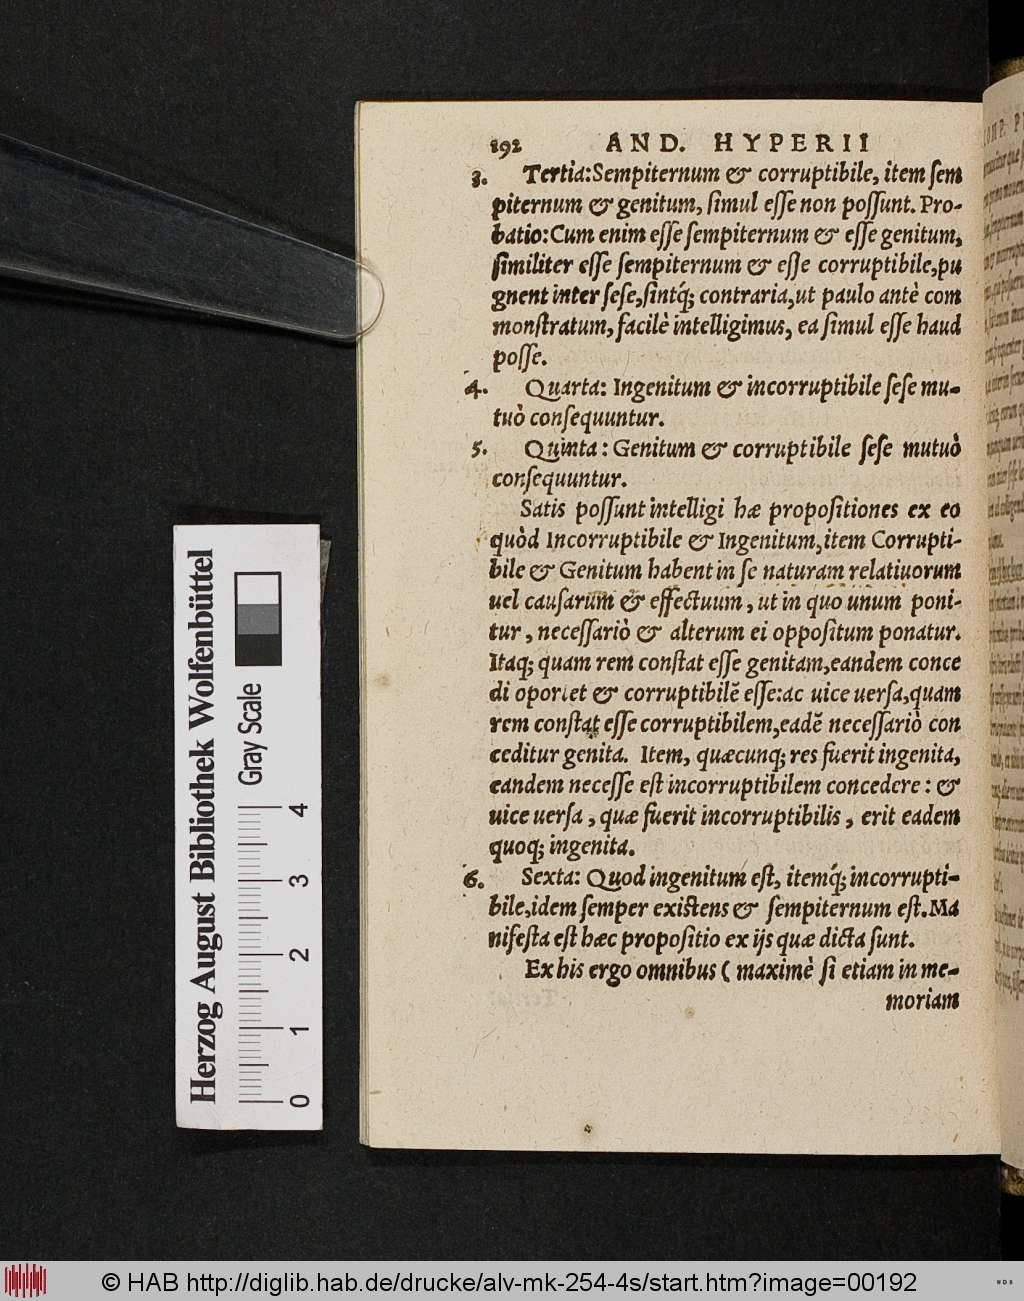 192 AND. HYPERII
3. Tertia: Sempiternum & corruptibile, item sem
piternum & genitum, simul esse non possunt. Pro-
batio: Cum enim esse sempiternum & esse genitum,
similiter esse sempiternum & esse corruptibile, pu
gnent inter sese, sintq́; contraria, ut paulo antè com
monstratum, facilè intelligimus, ea simul esse haud
posse.
4. Quarta: Ingenitum & incorruptibile sese mu-
tuò consequuntur.
5. Quinta: Genitum & corruptibile sese mutuò
consequuntur.
Satis possunt intelligi hæ propositiones ex eo
quòd Incorruptibile & Ingenitum, item Corrupti-
bile & Genitum habent in se naturam relatiuorum
uel causarum & effectuum, ut in quo unum poni-
tur, necessariò & alterum ei oppositum ponatur.
Itaq; quam rem constat esse genitam, eandem conce
di oportet & corruptibilẽ esse: ac uice uersa, quam
rem constat esse corruptibilem, eadẽ necessariò con
ceditur genita. Item, quæcunq; res fuerit ingenita,
eandem necesse est incorruptibilem concedere: &
uice uersa, quæ fuerit incorruptibilis, erit eadem
quoq; ingenita.
6. Sexta: Quod ingenitum est, itemq́; incorrupti-
bile, idem semper existens & sempiternum est. Ma
nifesta est hæc propositio ex ijs quæ dicta sunt.
Ex his ergo omnibus ( maximè si etiam in me-
moriam
Herzog August Bibliothek Wolfenbüttel
Gray Scale
0 1 2 3 4
© HAB http://diglib.hab.de/drucke/alv-mk-254-4s/start.htm?image=00192